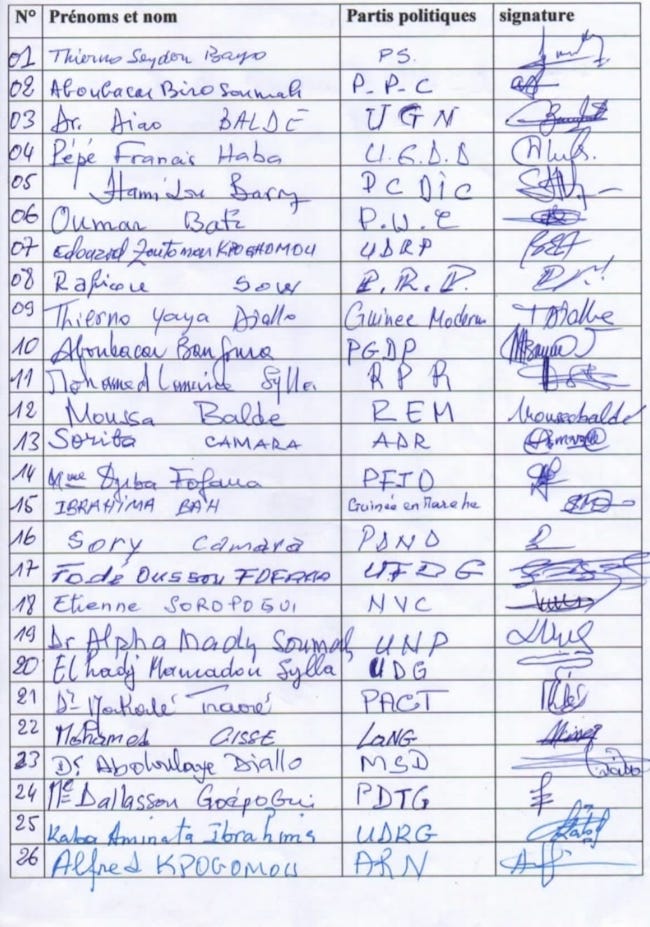 N° Prénoms et nom Partis politiques signature
01 Thierno Seydou Bayo PS.
02 Aboubacar Biro Soumah P-P-C
03 Dr. Diao BALDE UGN
04 Pépé Francis Haba U.G.D.D
05 Hamidou Barry PC DiC
06 Oumar
07 Edouard Zoutomou KPOGHOMOU UDRP
08 Sow P.R.P.
09 Thierno Yaya Diallo Guinee Moderne TDiallo
10 Aboubacar Bangoura PGDP
11 Mohamed Lamine Sylla RPR
12 Moussa Balde REM Moussabaldé
13 Soriba CAMARA ADR
14 Mme Fofana
15 IBRAHIMA BAH Guinée en Marche
16 Sory Camara PDND
17 Fodé Oussou FOFANA UFDG
18 Etienne SOROPOGUI NVC
19 Dr Alpha Mady Soumah UNP
20 El hadj Mamadou Sylla UDG
21 Dr Traoré PACT
22 Mohamed CISSE LONG
23 Dr Abdoulaye Diallo MSD
24 Me Dallasson Goépogui PDTG
25 Kaba Aminata Ibrahima UDRG
26 Alfred KPOGOMOU ARN